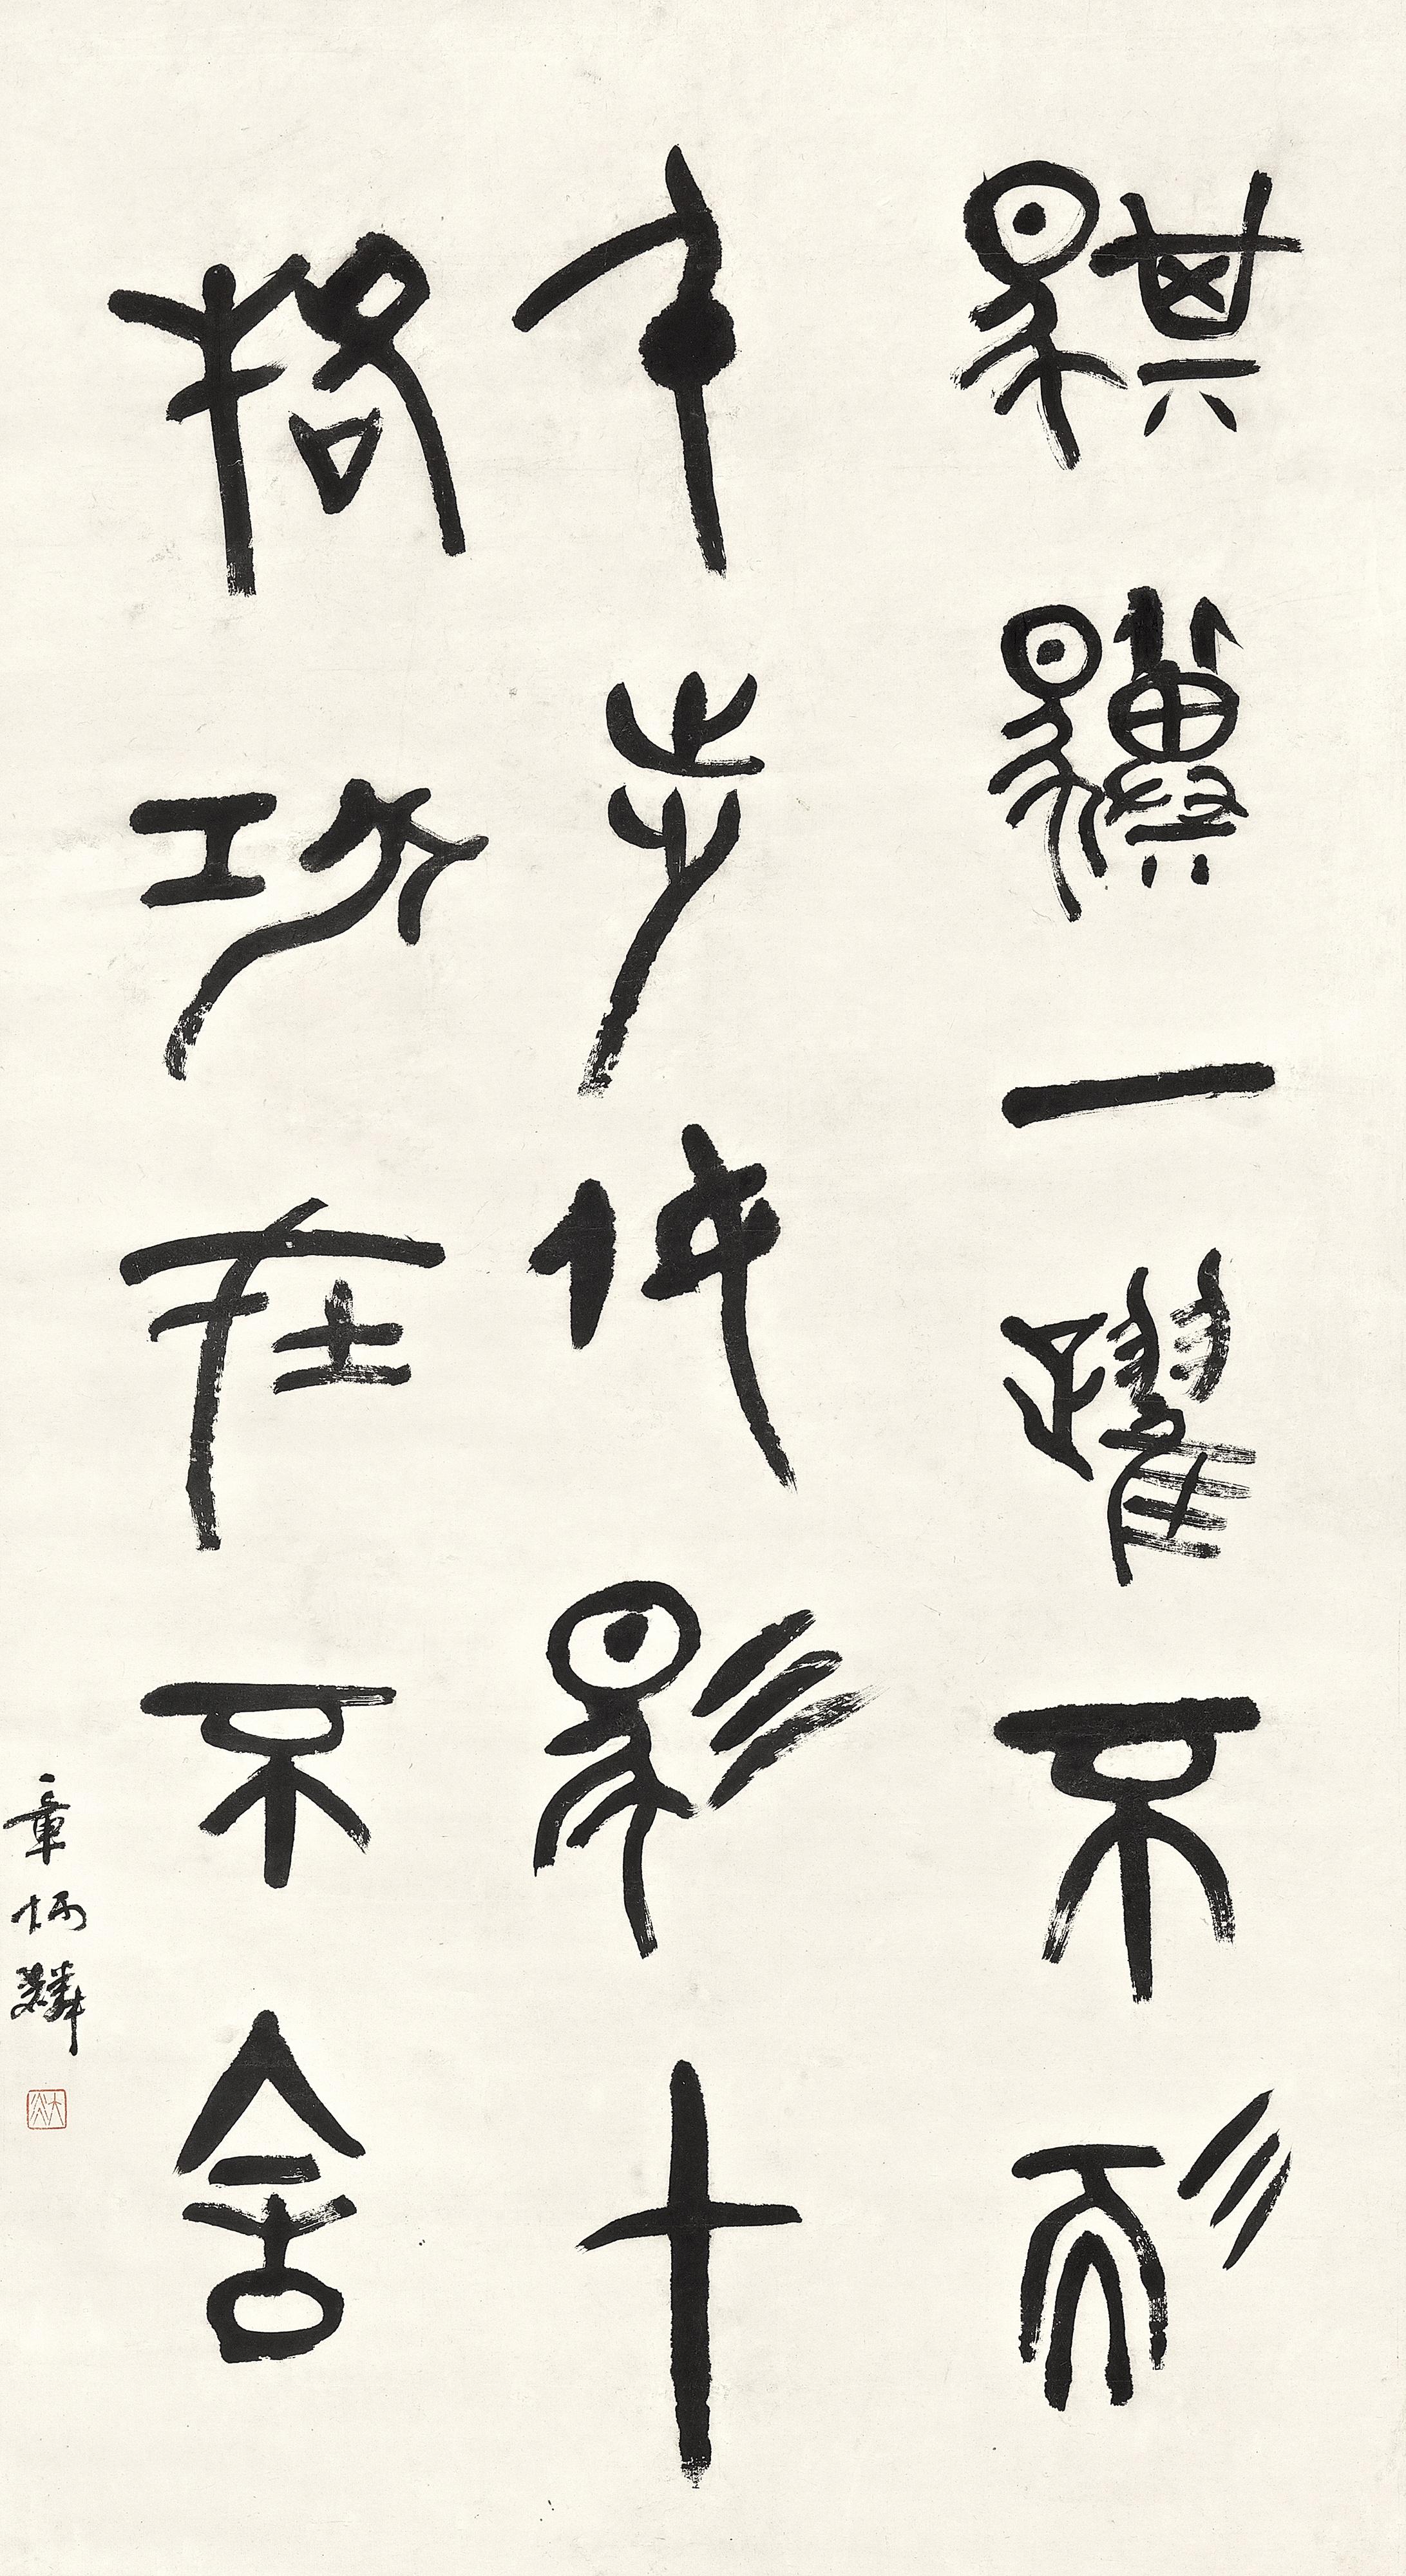 騏驥一躍不耏
千步㚢馬十
駕功在不舍
章炳麟